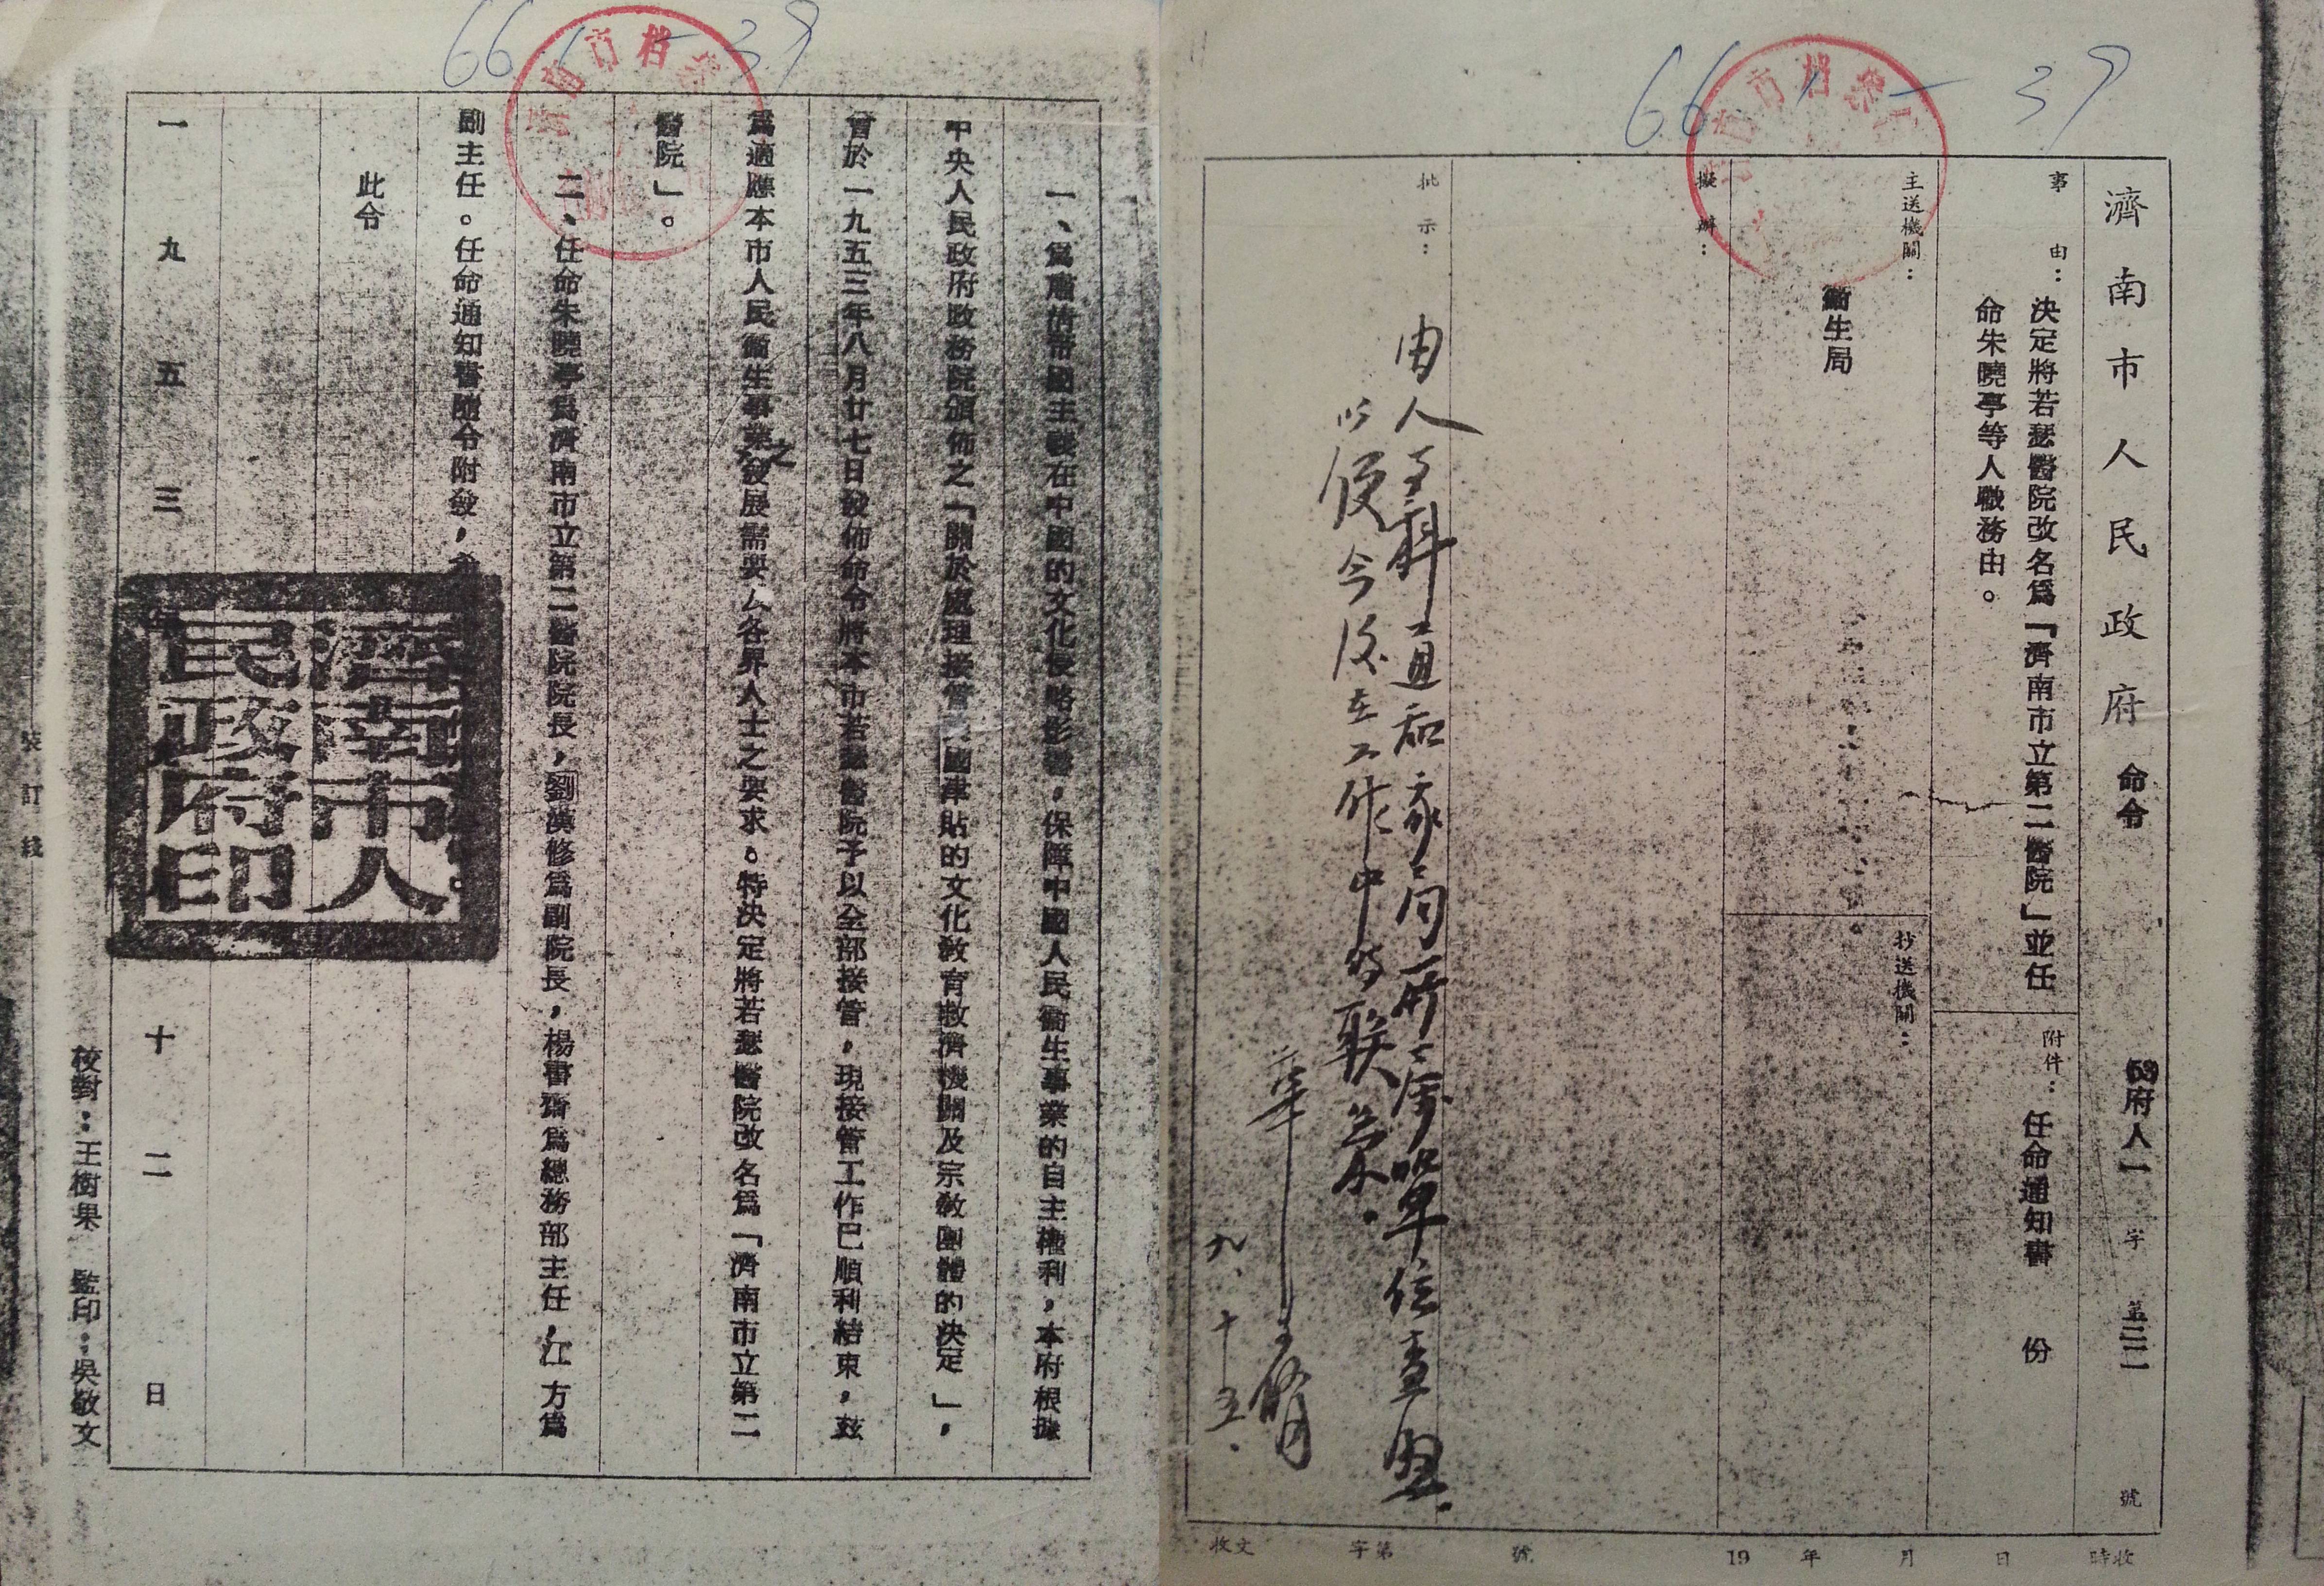 濟南市人民政府命令
53府人一字第三二號
事由：決定將若瑟醫院改名爲「濟南市立第二醫院」並任
命朱曉亭等人職務由。
附件：任命通知書 份
主送機關：
衞生局
抄送機關：
擬辦：
批示：
由人事科通知家局所屬單位查照.
以便今后在工作中的联系.
九.十五.
收文 字第 號 19 年 月 日 時收
66 1 - 39
濟南市档案
一、爲肅清帝國主義在中國的文化侵略影響，保障中國人民衞生事業的自主權利，本府根據
中央人民政府政務院頒佈之「關於處理接管美國津貼的文化敎育救濟機關及宗敎團體的決定」，
曾於一九五三年八月廿七日發佈命令將本市若瑟醫院予以全部接管，現接管工作已順利結束，茲
爲適應本市人民衞生事業之發展需要及各界人士之要求。特決定將若瑟醫院改名爲「濟南市立第二
醫院」。
二、任命朱曉亭爲濟南市立第二醫院院長，劉漢修爲副院長，楊書齋爲總務部主任，江方爲
副主任。任命通知書隨令附發，
此令
一九五三年 十二日
濟南市人民政府印
校對：王樹果 監印：吳敬文
裝訂綫
66 1 - 39
濟南市档案